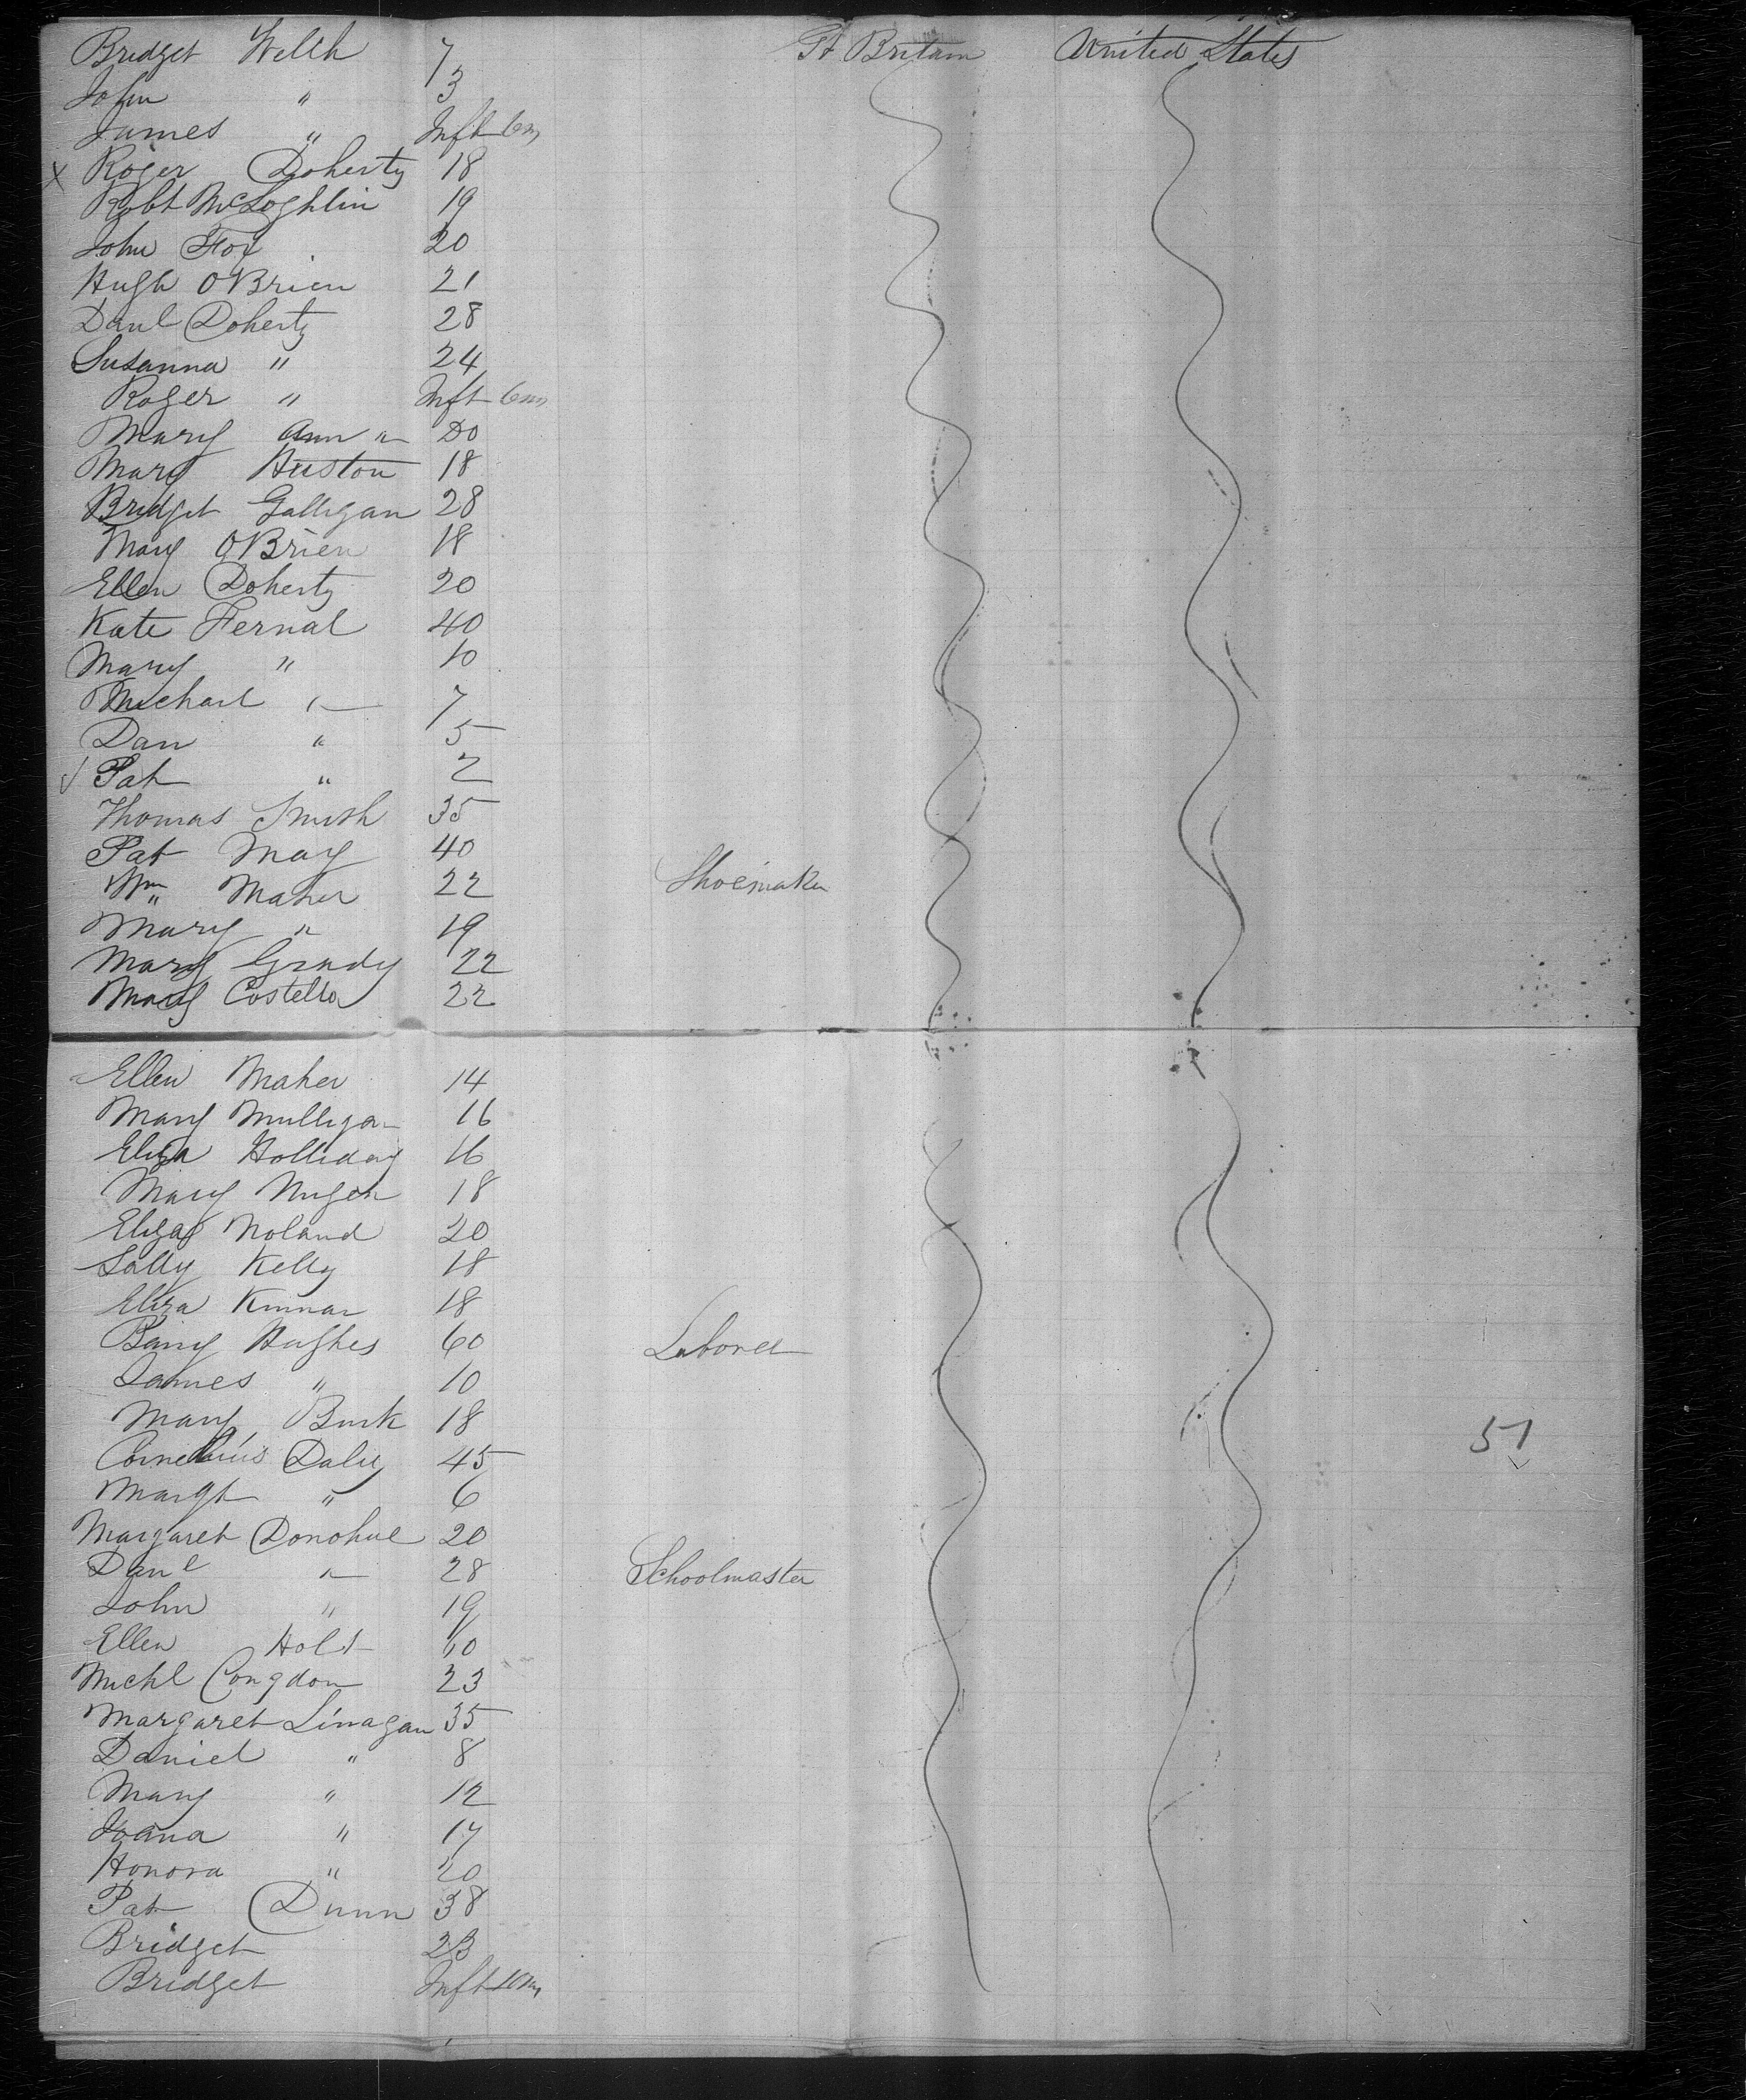 Bridget Welsh 7 Gt Britain United States
John " 3
James " Inft 6m
x Roger Doherty 18
Robt McLoghlin 19
John Foy 20
Hugh OBrien 21
Danl Doherty 28
Susanna " 24
Roger " Inft 6m
Mary Ann " Do
Mary Huston 18
Bridget Galligan 28
Mary OBrien 18
Ellen Doherty 20
Kate Fernal 40
Mary " 10
Michael " 7
Dan " 5
✓ Pat " 2
Thomas Smith 35
Pat May 40
Wm Maher 22 Shoemaker
Mary " 19
Mary Grady 22
Mary Costello 22
Ellen Maher 14
Mary Mulligan 16
Eliza Holliday 16
Mary Nugen 18
Eliza Noland 20
Sally Kelly 18
Eliza Kinnan 18
Barry Hughes 60 Laborer
James " 10
Mary Burk 18
51
Cornelius Daley 45
Margt " 6
Margaret Donohue 20
Danl " 28 Schoolmaster
John " 19
Ellen Holt
Michl Congdon 23
Margaret Linagan 35
Daniel " 8
Mary " 12
Joana " 17
Honora " 20
Pat Dunn 38
Bridget 23
Bridget Inft 10m